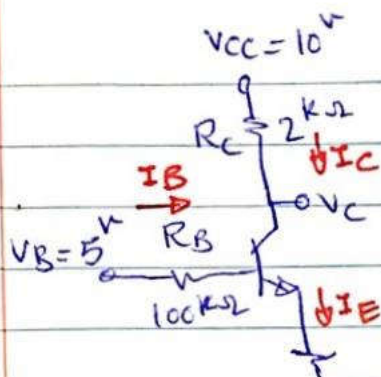 VCC = 10v
RC 2kΩ
IC
IB
VC
VB = 5v
RB
100kΩ
IE